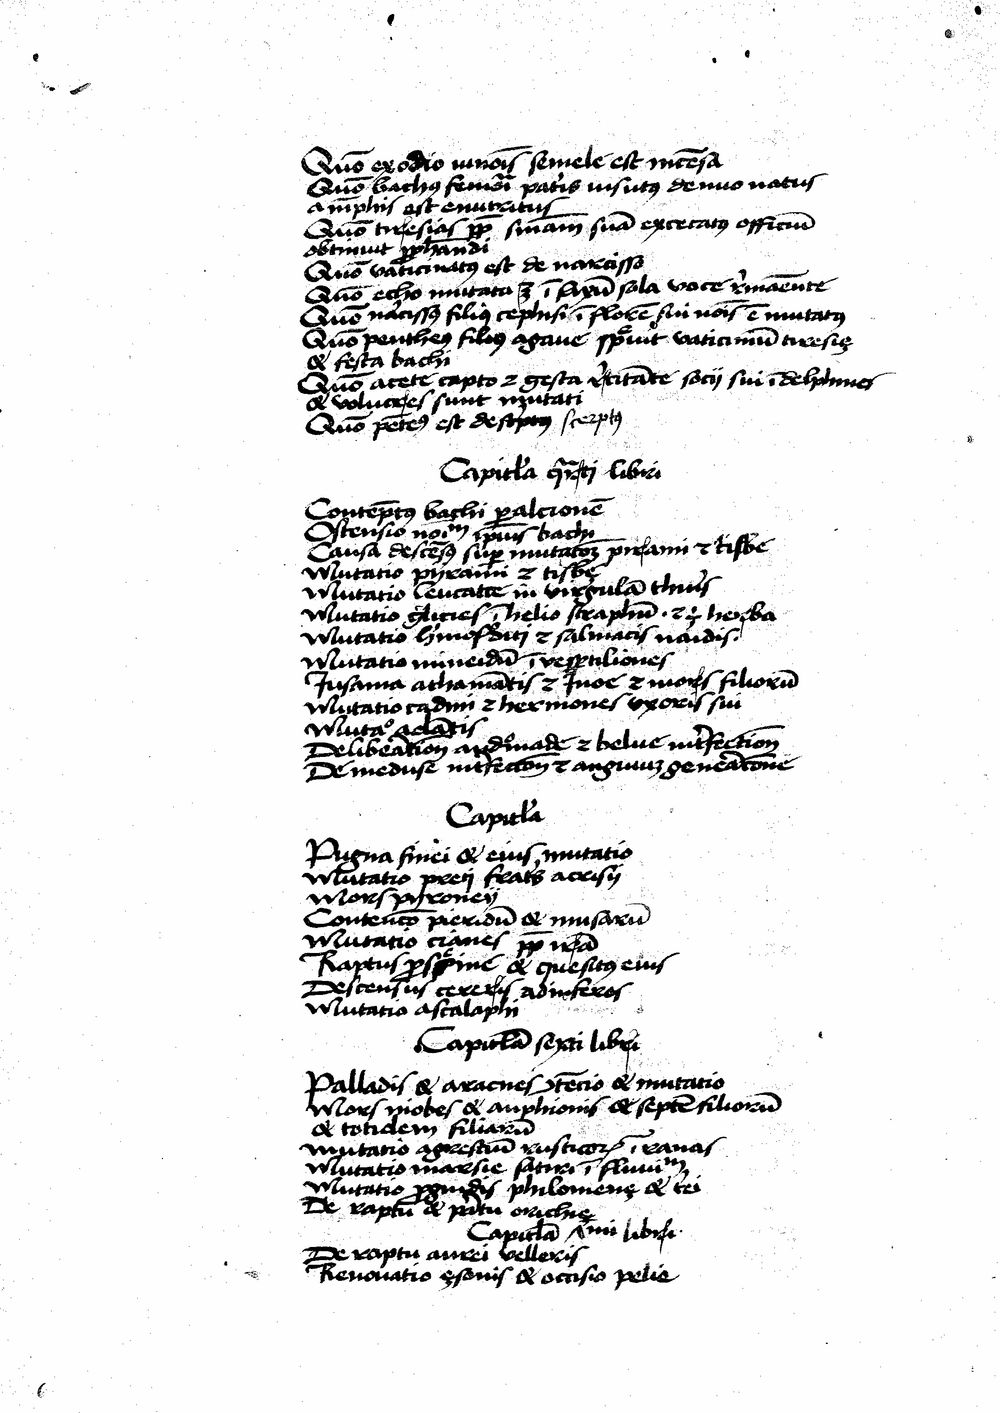 Quō ex odio iunoīs semele est incēsa
Quō bachꝯ femori pat's insutꝯ denuo natus
a nīphis est enutritus
Quō tiresias ꝓꝑ sniam suā excecatꝯ officiū
obtinuit ꝓphandi
Quō vaticinatꝯ est de narcisso
Quō echo mutata ī sola voce r̄maēnte
Quō narcissꝯ filiꝯ cephisi ī florē sui noīs ē mutatꝯ
Quō pentheꝯ filiꝯ agaue spreuit vaticiniū tiresię
& festa bachi
Quō acete capto ⁊ gesta recitāte socij sui ī delphines
& volucres sunt mutati
Quō pētēꝯ est scerptꝯ
Capitl'a quarti libri
Contēptꝯ bachi ꝑ alcionē
Ostensio noīm ipsius bachi
Causa descēsꝯ suꝑ mutatoꝫ pirami ⁊ tisbe
Mutatio pyrami ⁊ tisbę
Mutatio leucatee in virgulā thuris
Mutatio ī helio herba
Mutatio hmofditi ⁊ salmacis naidis.
Mutatio mineidū ī vespertiliones
Insania athamātis ⁊ Inoe ⁊ mors filiorū
Mutatio cadmi ⁊ hermones vxoris sui
Mutaᵒ aclātis
Deliberation andromade ⁊ belue int'fection
De meduse int'fection ⁊ anguiuꝫ generatione
Capitl'a
Pugna finei & eius mutatio
Mutatio preti frat's acrisij
Mors pyroneij
Contencō pieridū & musarū
Mutatio cianes ꝓꝑ
Raptus ꝓsꝑine & quesitꝯ eius
Descensus cereris ad inferos
Mutatio ascalaphi
Capitl'a sexti libri
Palladis & aracnes ꝯtēcio & mutatio
Mors niobes & anphionis & septē filiorū
& totidem filiarū
mutatio agrestiū rusticoꝝ ī ranas
Mutatio marsie satiri ī fluuiᵐ
Mutatio ꝓgnidis philomenę & t'ei
De raptu & ptu orichię
Capitl'a libri.
De raptu aurei velleris
Renouatio ęsonis & occisio pelie
6